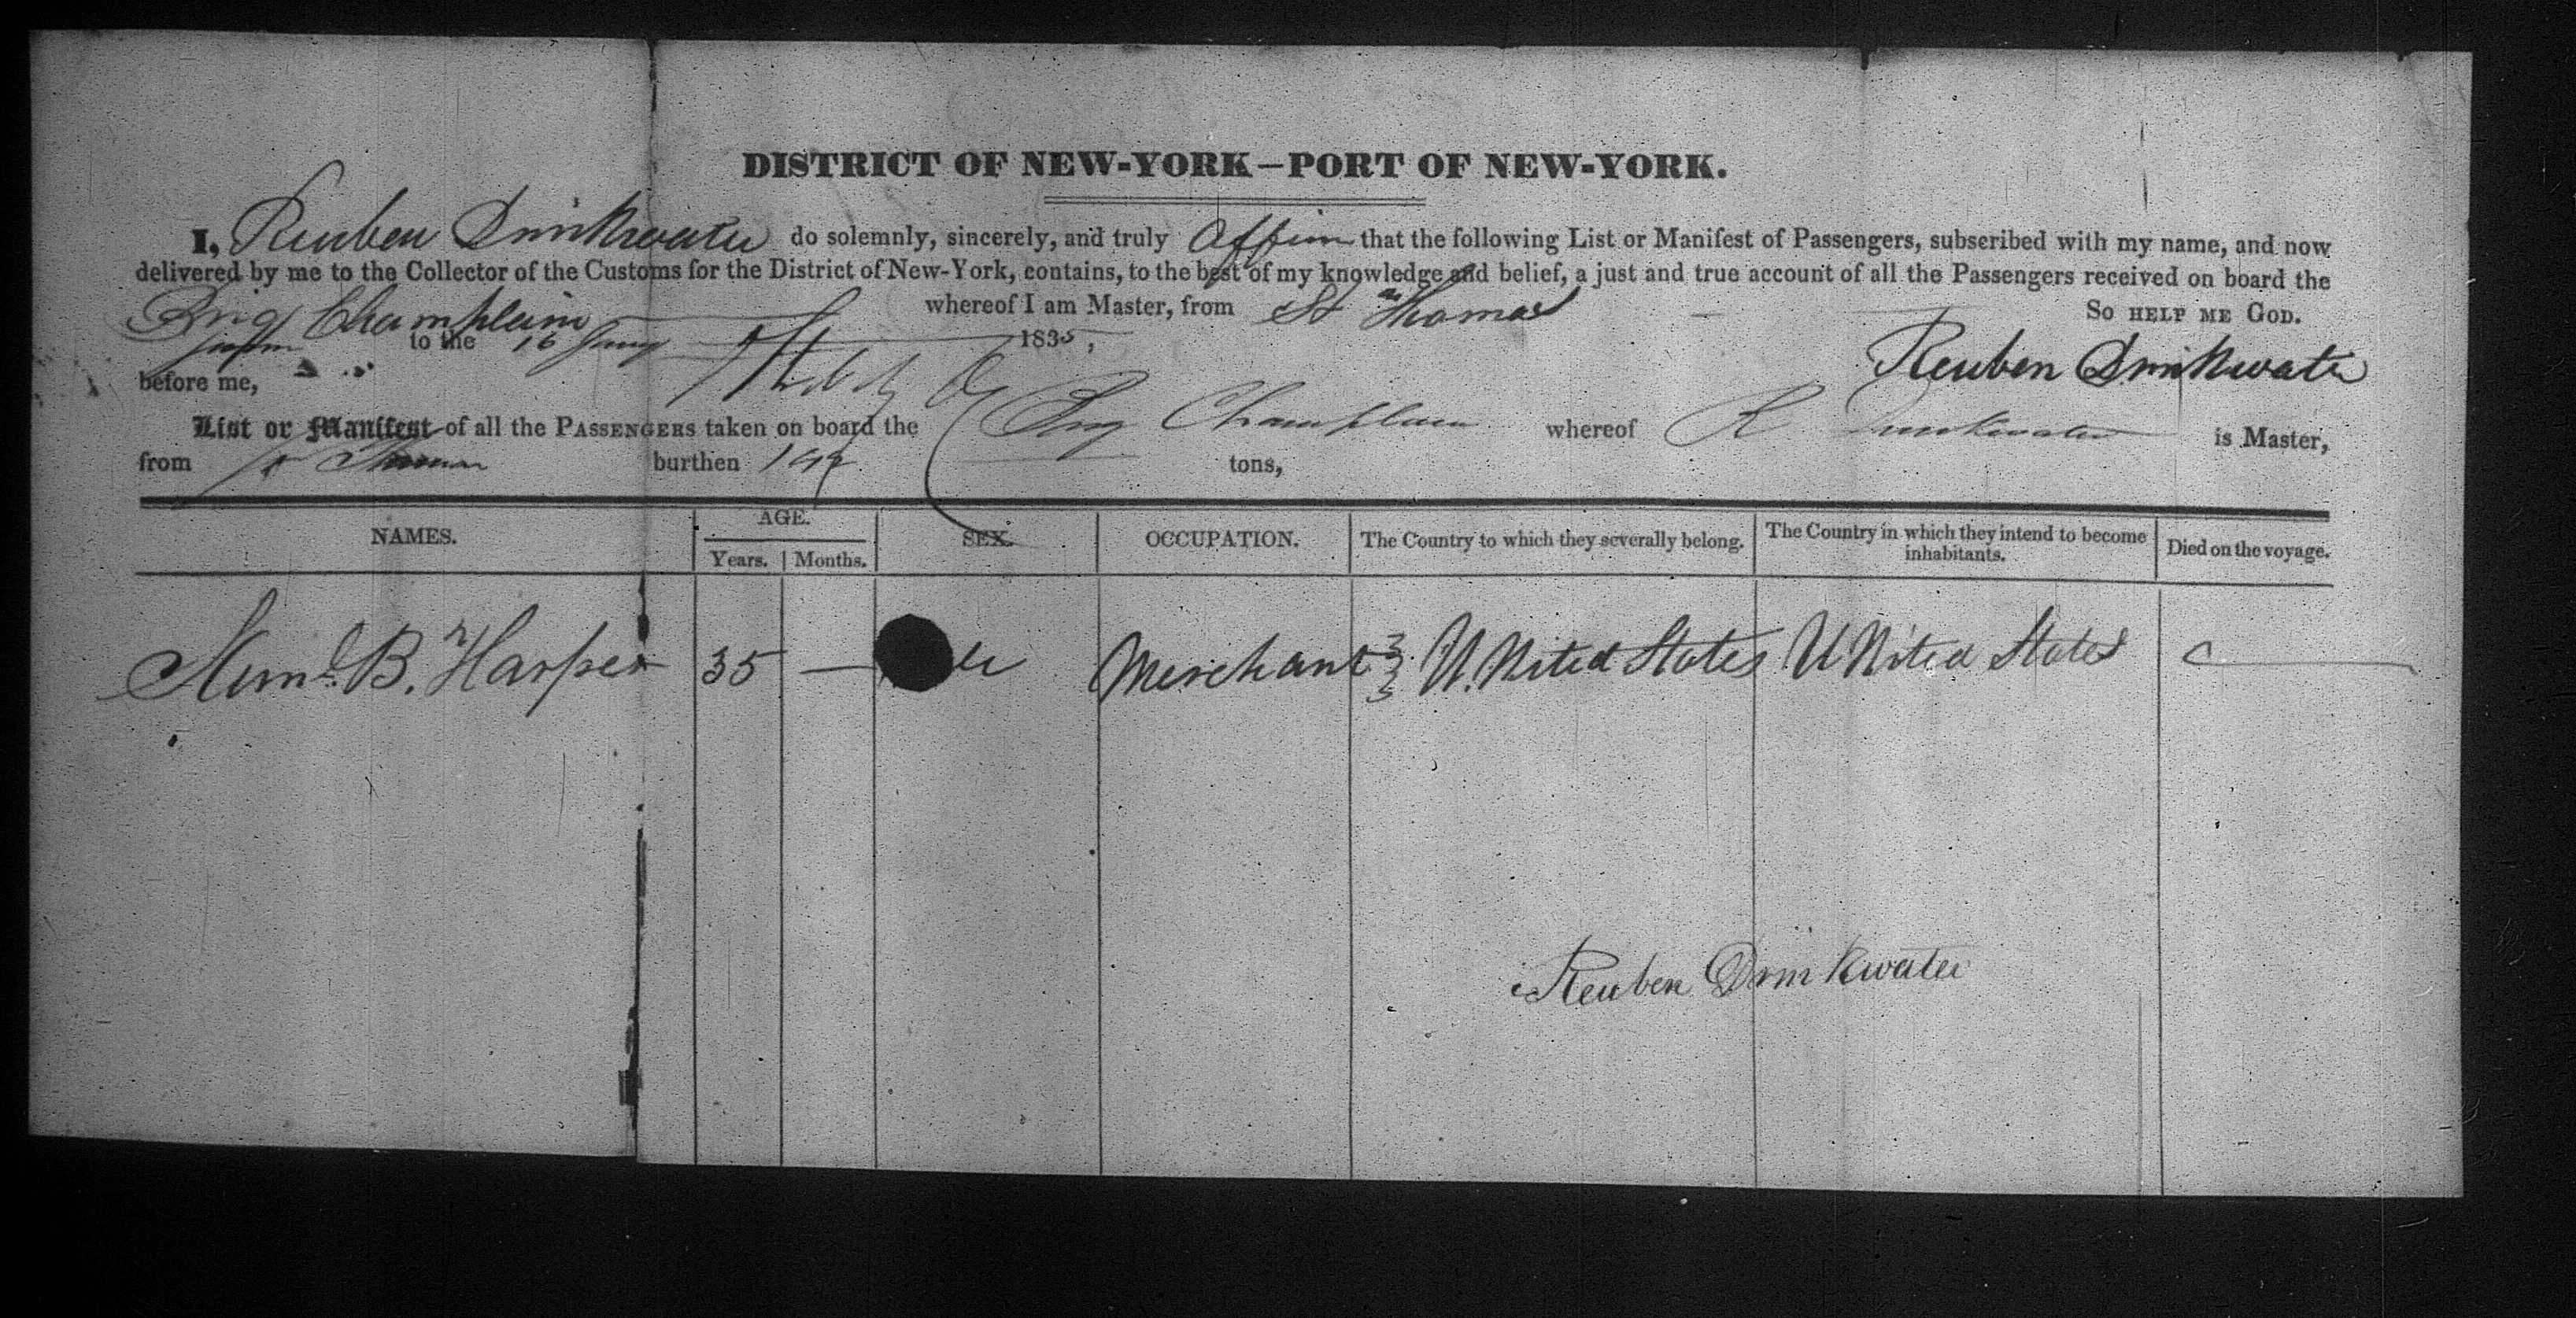 DISTRICT OF NEW-YORK—PORT OF NEW-YORK.
I, Reuben Drinkwater do solemnly, sincerely, and truly Affirm that the following List or Manifest of Passengers, subscribed with my name, and now
delivered by me to the Collector of the Customs for the District of New-York, contains, to the best of my knowledge and belief, a just and true account of all the Passengers received on board the
Brig Champlain whereof I am Master, from St Thomas So HELP ME GOD.
to the 16 1835,
Reuben Drinkwater
before me,
List or Manifest of all the PASSENGERS taken on board the Brig Champlain whereof R Drinkwater is Master,
from St Thomas burthen tons,
NAMES. AGE. SEX. OCCUPATION. The Country to which they severally belong. The Country in which they intend to become inhabitants. Died on the voyage.
Years. Months.
B. Harper 35 — Merchant United States United States
Reuben Drinkwater